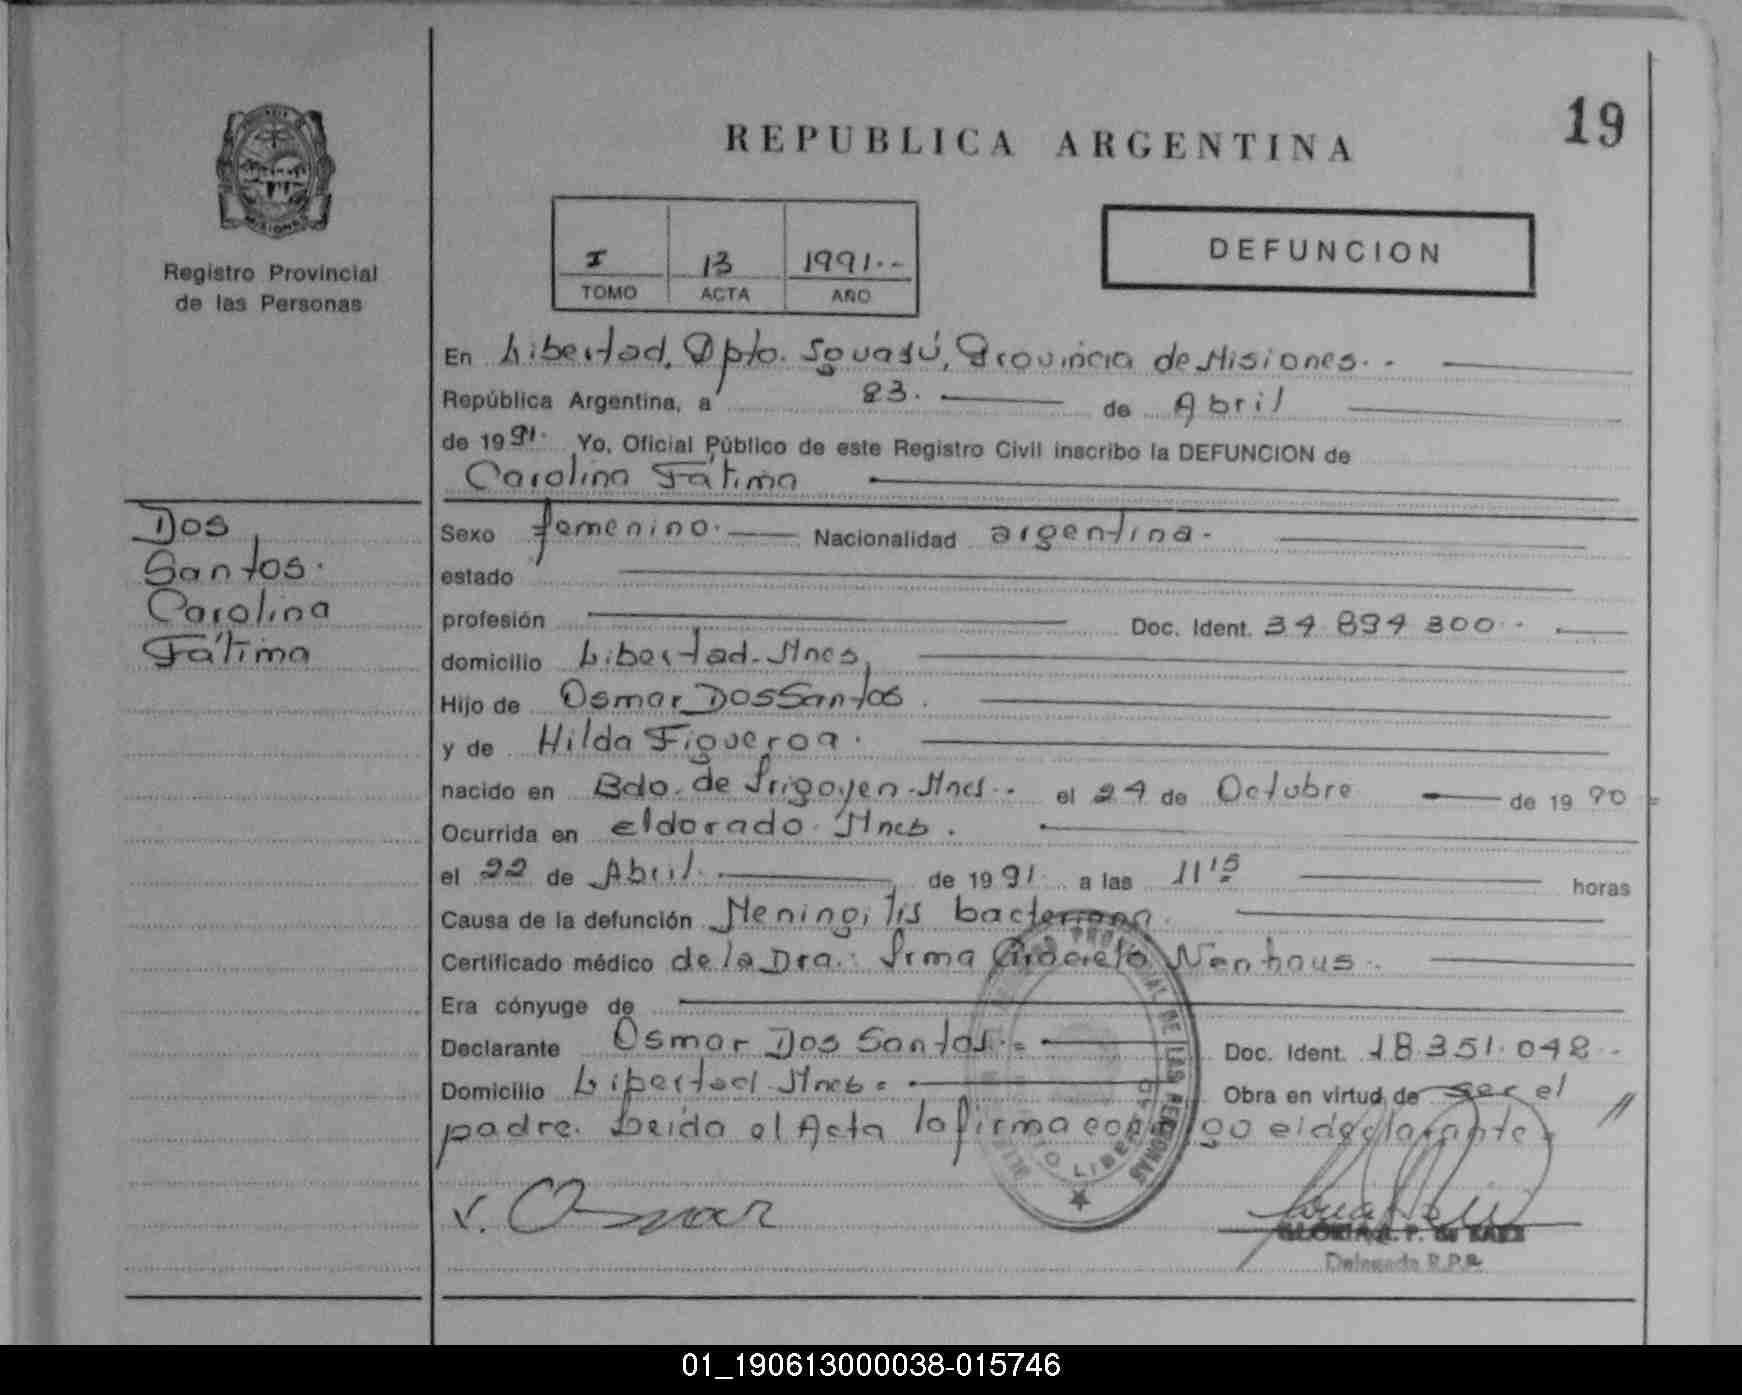 19
REPUBLICA ARGENTINA
DEFUNCION
I 13 1991.--
TOMO ACTA AÑO
Registro Provincial
de las Personas
En Libertad, Dpto. Iguazú, Provincia de Misiones. -
República Argentina, a 23. de Abril
de 1991. Yo, Oficial Público de este Registro Civil inscribo la DEFUNCION de
Carolina Fátima
Dos
Santos.
Carolina
Fátima
Sexo femenino. Nacionalidad argentina.
estado
profesión Doc. Ident. 34.894.300.
domicilio Libertad. Mnes.
Hijo de Osmar Dos Santos.
y de Hilda Figueroa.
nacido en Bdo. de Irigoyen. Mnes. el 24 de Octubre de 1990
Ocurrida en eldorado. Mnes.
el 22 de Abril. de 1991. a las 11 15 horas
Causa de la defunción Meningitis bacteriana.
Certificado médico de la Dra. Irma Nenhaus.
Era cónyuge de
Declarante Osmar Dos Santos. Doc. Ident. 18.351.048.
Domicilio Libertad. Mnes. Obra en virtud de ser el
padre. Leida el Acta la firma conmigo el declarante. //
v. Osmar
GLORIA P. de BAEZ
Delegada R.P.P.
01_190613000038-015746